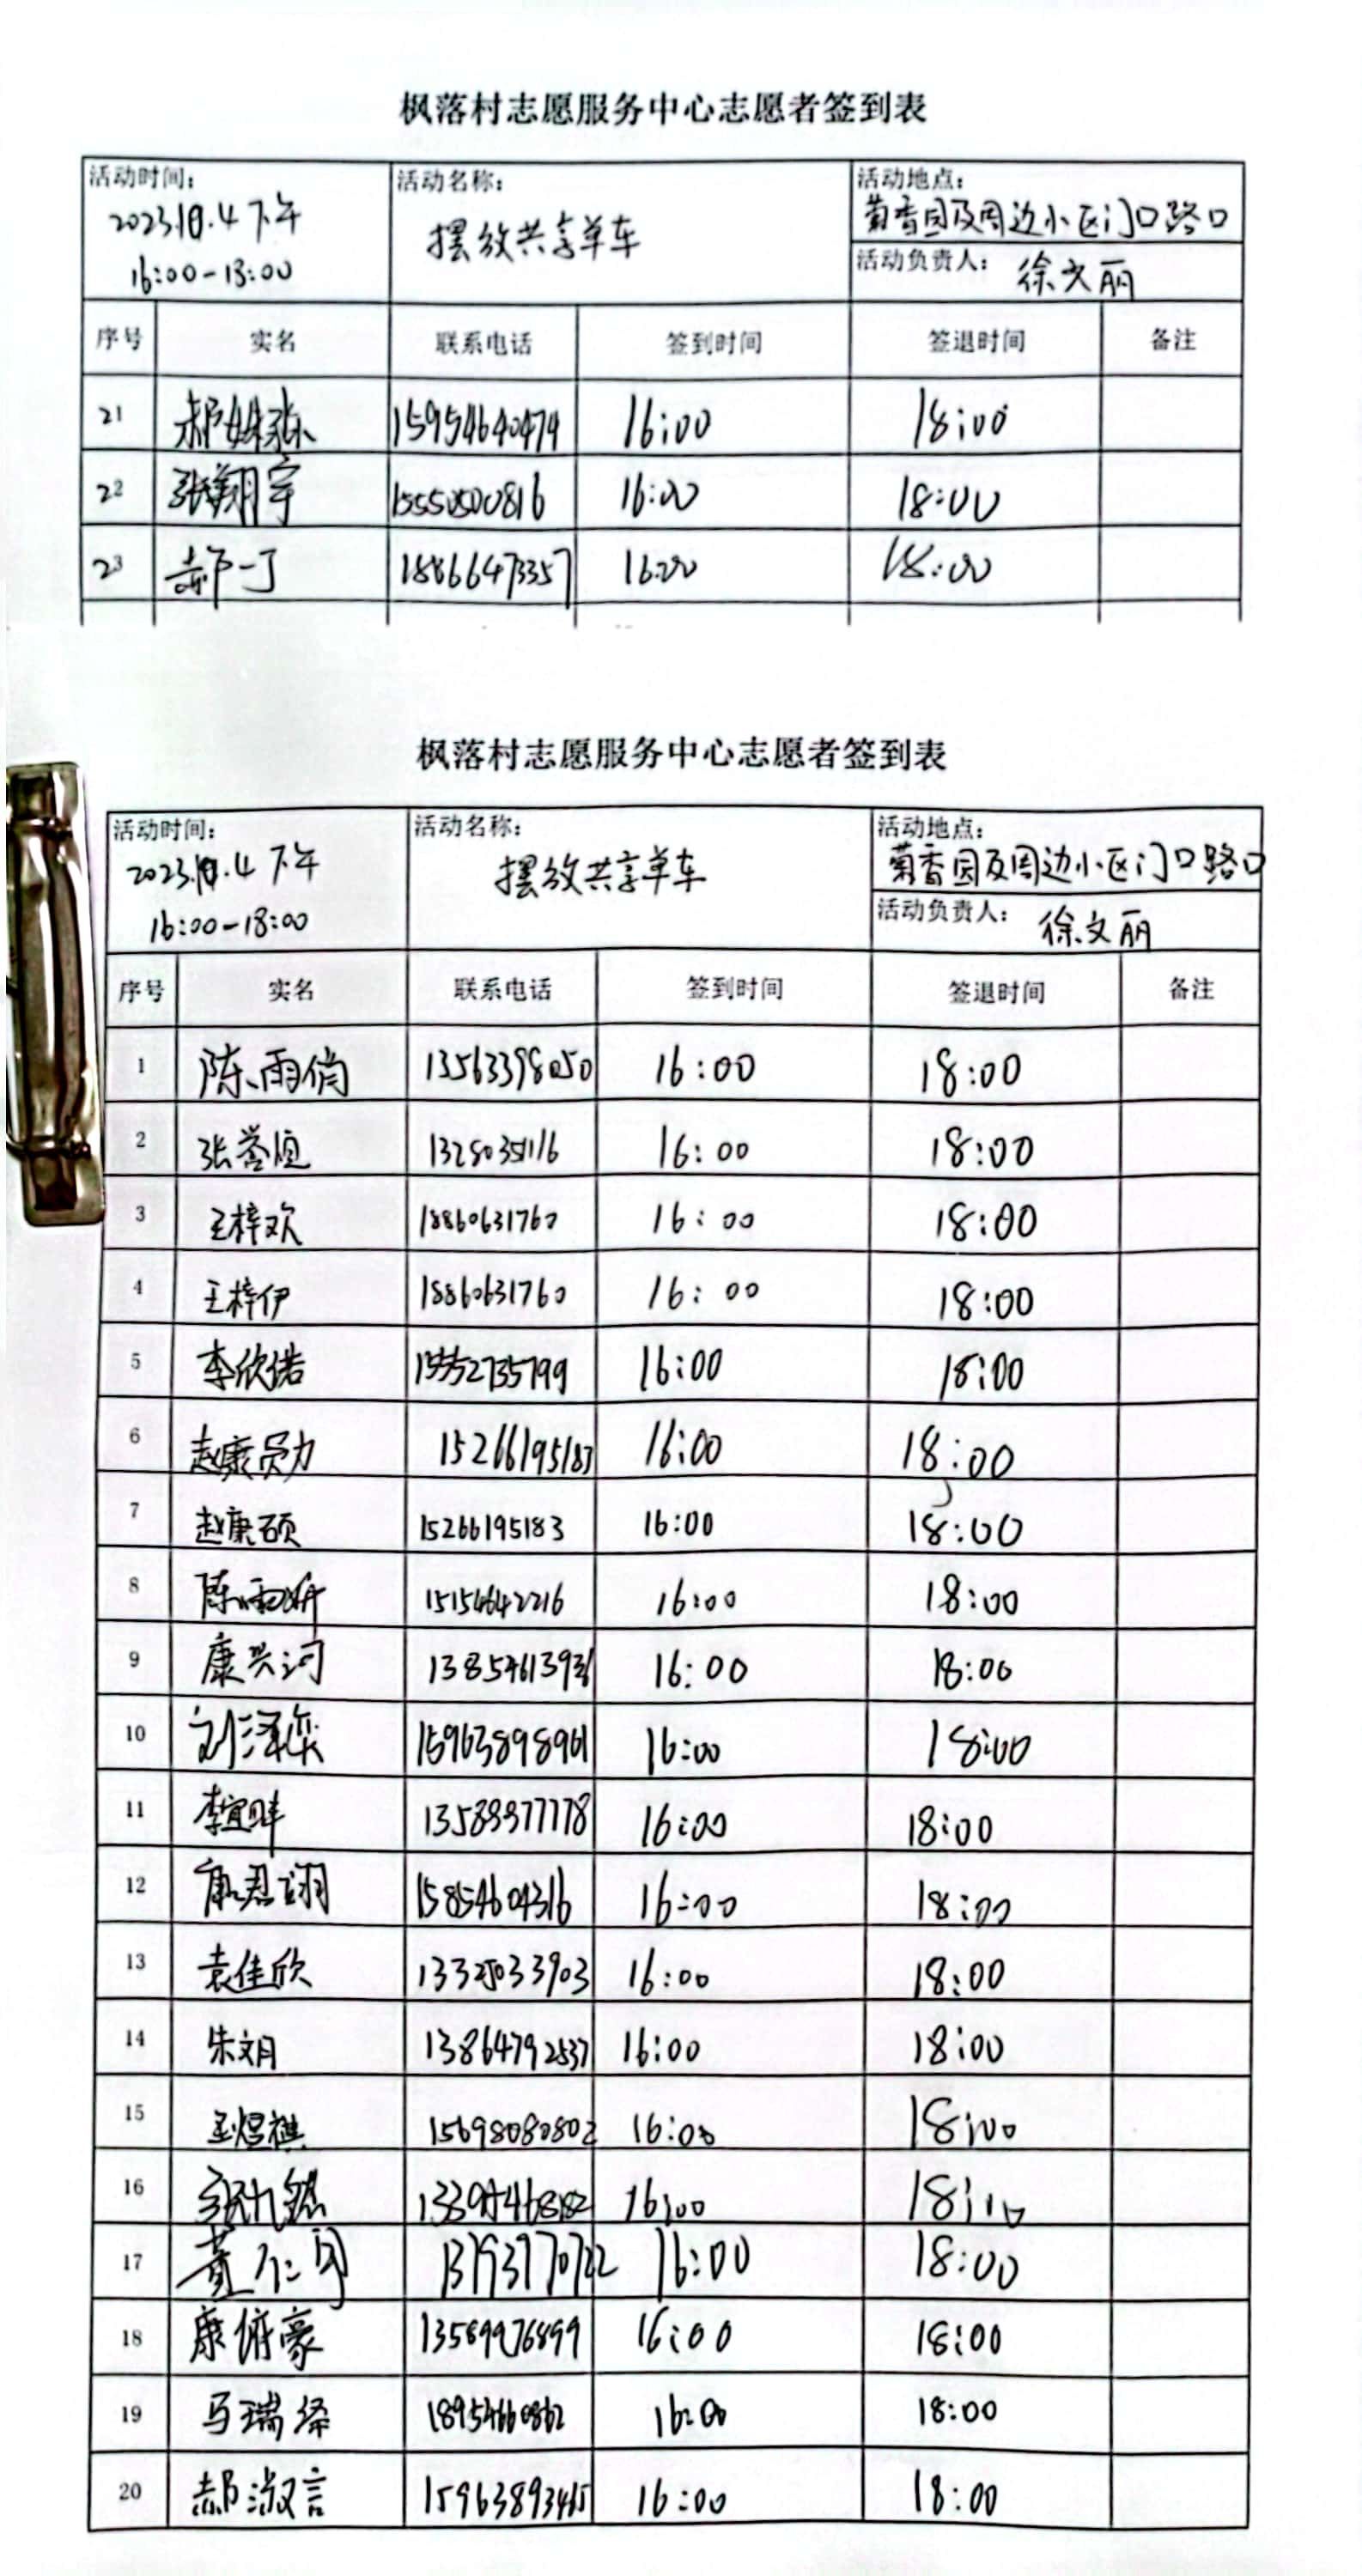 枫落村志愿服务中心志愿者签到表
活动时间： 活动名称： 活动地点：
2023.10.4下午 摆放共享单车 菊香园及周边小区门口路口
16:00-18:00 活动负责人： 徐文丽
序号 实名 联系电话 签到时间 签退时间 备注
21 郝姝 15954640474 16:00 18:00
22 张翔宇 15550500816 16:00 18:00
23 郝一丁 18866473357 16:00 18:00
枫落村志愿服务中心志愿者签到表
活动时间： 活动名称： 活动地点：
2023.10.4下午 摆放共享单车 菊香园及周边小区门口路口
16:00-18:00 活动负责人： 徐文丽
序号 实名 联系电话 签到时间 签退时间 备注
1 陈雨俏 13563398050 16:00 18:00
2 张誉 16:00 18:00
3 王梓欢 18860631760 16:00 18:00
4 王梓伊 18860631760 16:00 18:00
5 李欣诺 16:00 18:00
6 赵康 15266195183 16:00 18:00
7 赵康硕 15266195183 16:00 18:00
8 陈雨昕 15154642216 16:00 18:00
9 康兴河 16:00 18:00
10 刘泽奕 15963898961 16:00 18:00
11 李宜 13589977778 16:00 18:00
12 康君翊 15854604316 16:00 18:00
13 袁佳欣 16:00 18:00
14 朱文月 13864792537 16:00 18:00
15 王煜祺 15698080802 16:00 18:00
16 16:00
17 董仁 16:00 18:00
18 康俯豪 13589976899 16:00 18:00
19 马瑞泽 18954660862 16:00 18:00
20 郝淑言 16:00 18:00